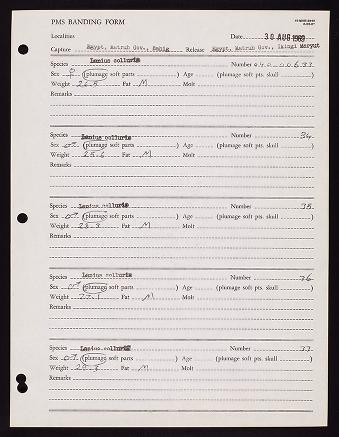 PMS BANDING FORM
Localities Date 30 AUG 1969
Capture Egypt, Matruh Gov., Release Egypt, Matruh Gov., Ikingi Maryut
Species Lanius collurio Number 040-00633
Sex ♀ (plumage soft parts ) Age (plumage soft pts. skull )
Weight 26.5 Fat M Molt
Remarks
Species Lanius collurio Number 34
Sex ♂ (plumage soft parts ) Age (plumage soft pts. skull )
Weight 25.6 Fat M Molt
Remarks
Species Lanius collurio Number 35
Sex ♂ (plumage soft parts ) Age (plumage soft pts. skull )
Weight Fat M Molt
Remarks
Species Lanius collurio Number 36
Sex ♂ (plumage soft parts ) Age (plumage soft pts. skull )
Weight Fat M Molt
Remarks
Species Lanius collurio Number 37
Sex ♂ (plumage soft parts ) Age (plumage soft pts. skull )
Weight Fat M Molt
Remarks